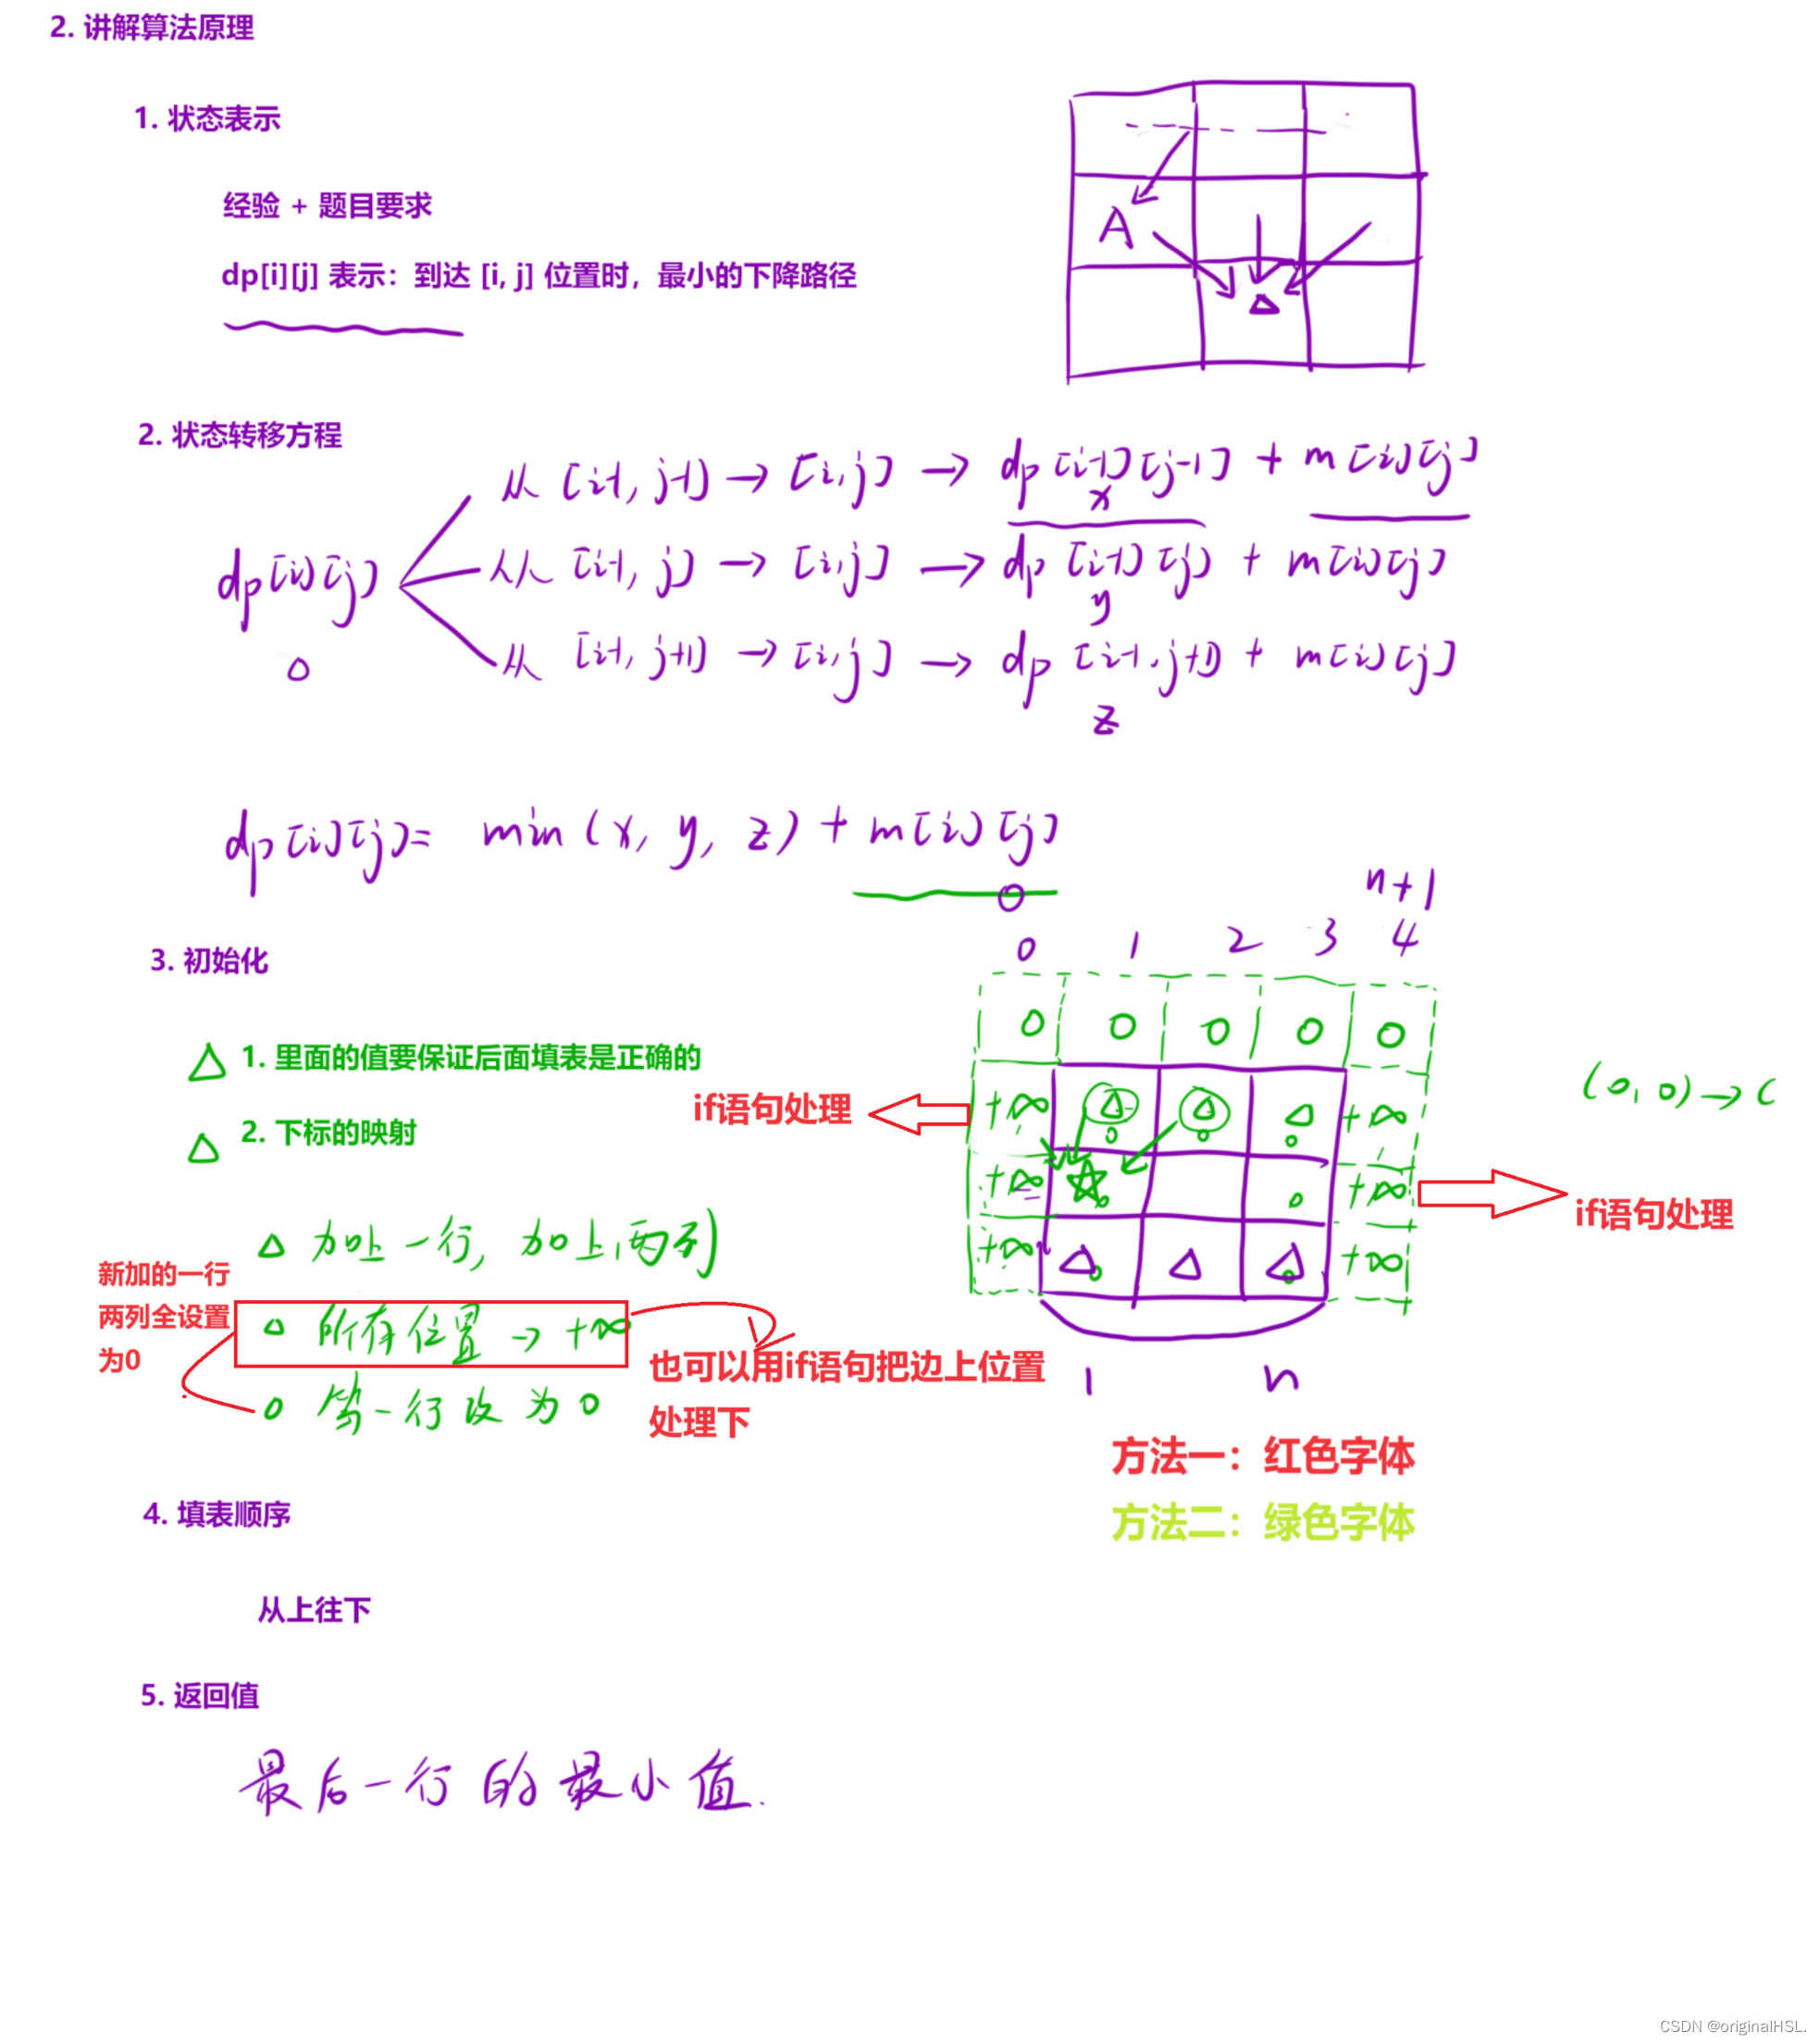 2. 讲解算法原理
1. 状态表示
经验 + 题目要求
dp[i][j] 表示：到达 [i, j] 位置时，最小的下降路径
A
2. 状态转移方程
dp[i][j]
从 [i-1, j-1] → [i, j] → dp[i-1][j-1] + m[i][j]
x
从 [i-1, j] → [i, j] → dp[i-1][j] + m[i][j]
y
从 [i-1, j+1] → [i, j] → dp[i-1, j+1] + m[i][j]
z
dp[i][j] = min(x, y, z) + m[i][j]
3. 初始化
n+1
0 1 2 3 4
0 0 0 0 0
1. 里面的值要保证后面填表是正确的
if语句处理
+∞ +∞
(0, 0) → (
2. 下标的映射
+∞ +∞
if语句处理
加上一行, 加上两列
+∞ +∞
新加的一行
两列全设置
为0
所有位置 → +∞
也可以用if语句把边上位置
处理下
第一行改为 0
1 n
方法一：红色字体
方法二：绿色字体
4. 填表顺序
从上往下
5. 返回值
最后一行的最小值.
CSDN @originalHSL.